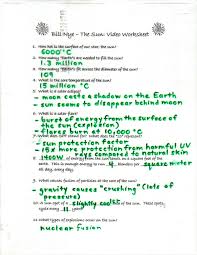 Bill Nye - The Sun: Video Worksheet
1. How hot is the surface of our star, the sun?
6000 °C
2. How many "Earths" are needed to fill the sun?
1.3 million
3. How many "Earths" fit across the diameter of the sun?
109
4. What is the core temperature of the sun?
15 million °C
5. What is a solar eclipse?
- moon casts a shadow on the Earth
- sun seems to disappear behind moon
6. What is a solar flare?
- burst of energy from the surface of the sun (explosion)
- flares burn at 10,000 °C
7. What does SPF
- sun protection factor
- 15x more protection from harmful UV rays compared to natural skin
8. 1400W of energy from the sun
This is enough energy to run 4 blenders per square meter
all day, every day.
9. What causes fusion of particles at the core of the sun?
- gravity causes "crushing" (lots of pressure)
10. A sun spot is a slightly cooler of the sun. These spots
cycle every 11 years
11. What types of explosions occur on the sun?
nuclear fusion